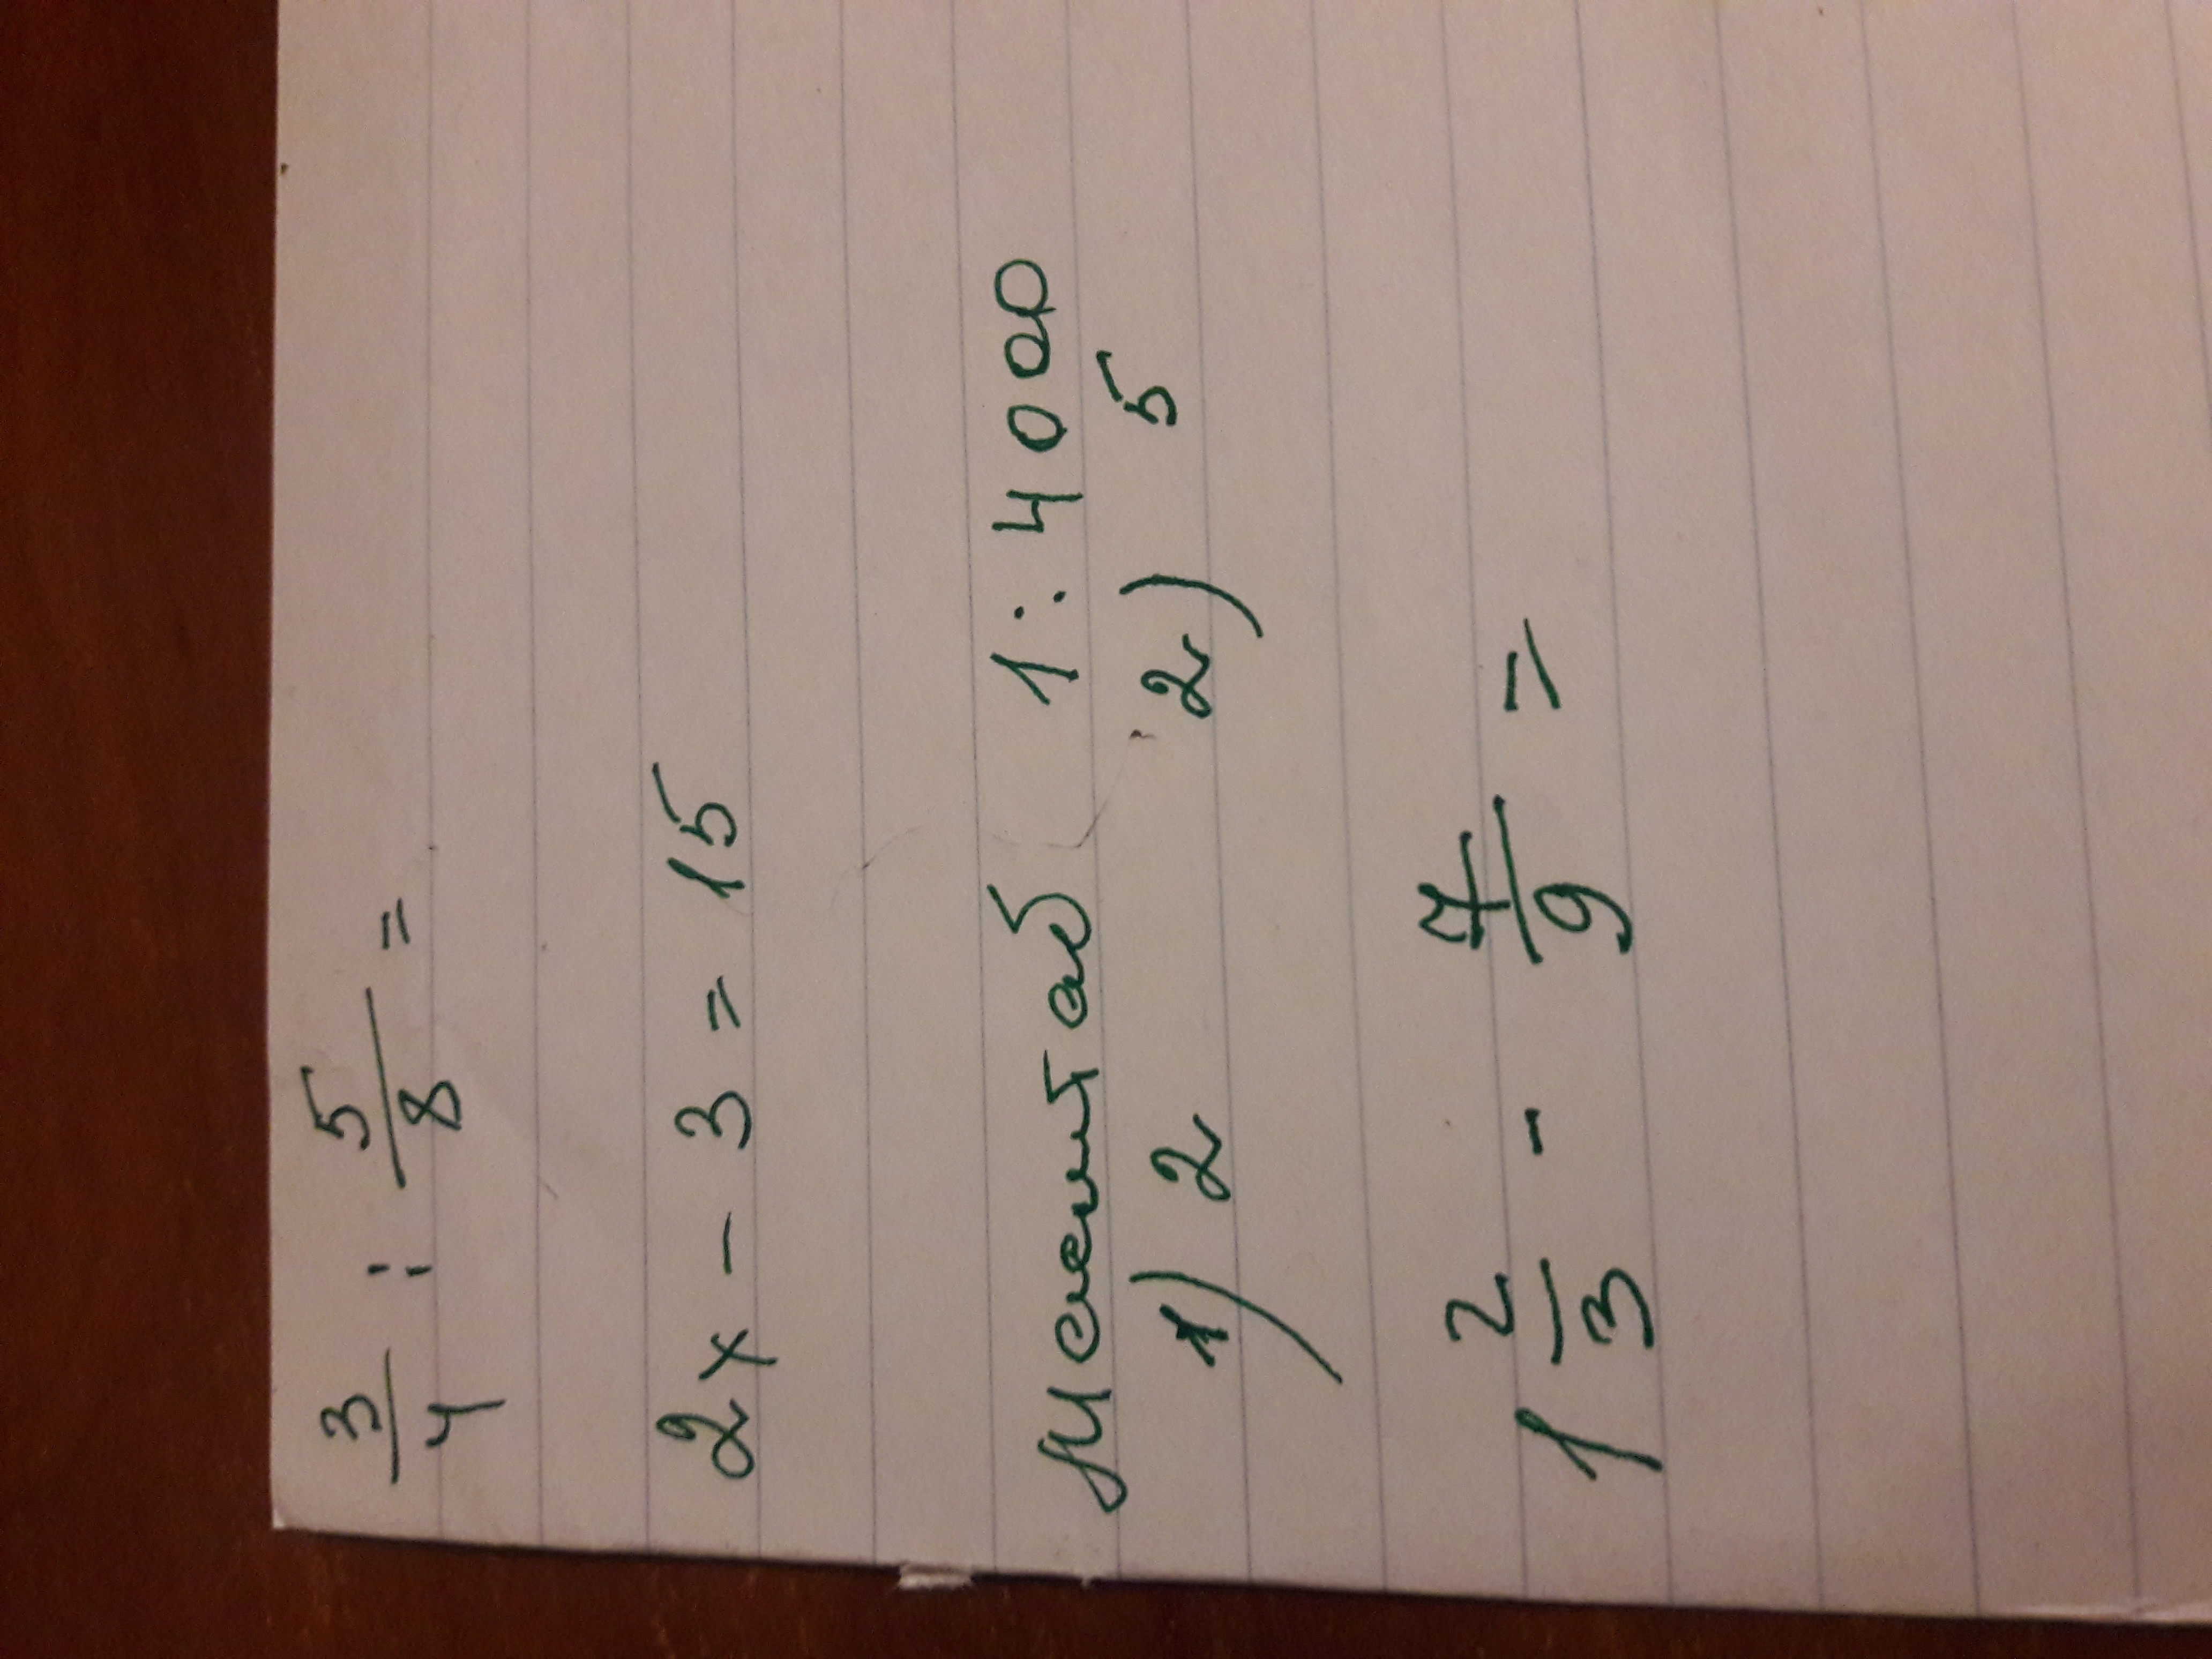 3/4 : 5/8 =
2x - 3 = 15
Масштаб 1 : 4000
1) 2 2) 5
1 2/3 - 7/9 =